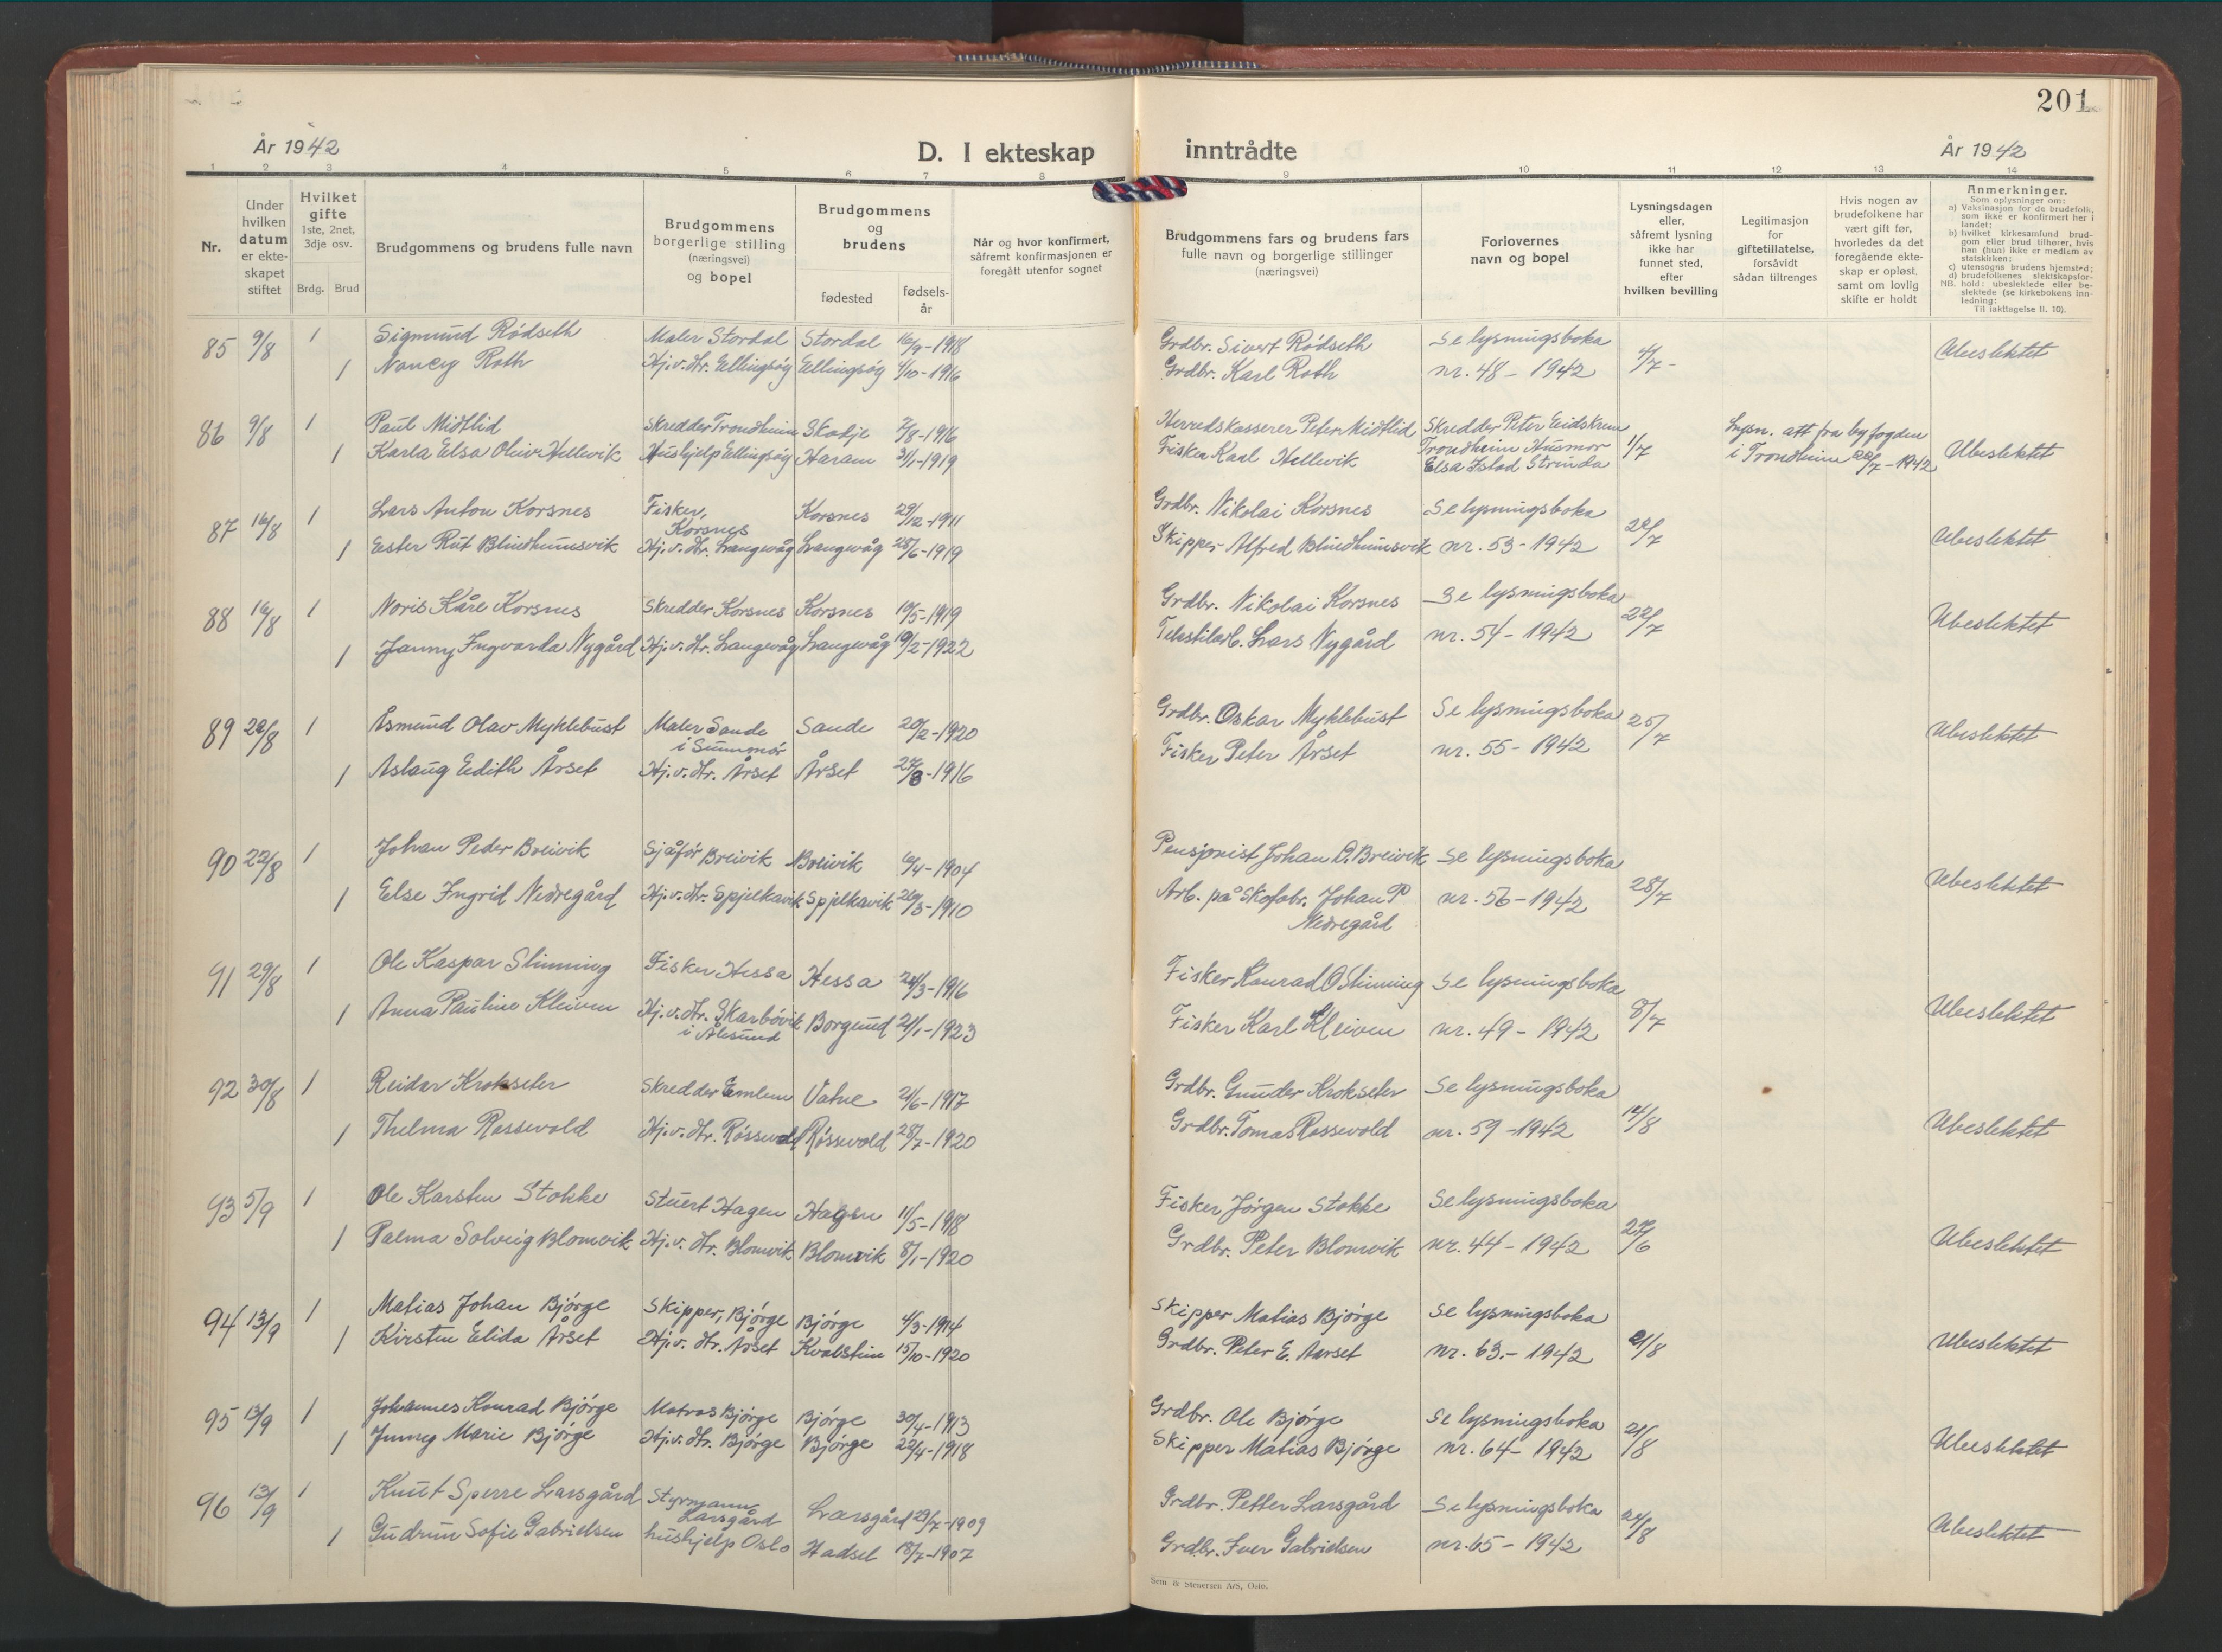 201
År 1942
D. I ekteskap inntrådte
År 1942
1 2 3 4 5 6 7 8 9 10 11 12 13 14
Nr.
Under hvilken datum er ekteskapet stiftet
Hvilket gifte 1ste, 2net, 3dje osv.
Brdg. Brud
Brudgommens og brudens fulle navn
Brudgommens borgerlige stilling (næringsvei) og bopel
Brudgommens og brudens
fødested
fødselsår
Når og hvor konfirmert, såfremt konfirmasjonen er foregått utenfor sognet
Brudgommens fars og brudens fars fulle navn og borgerlige stillinger (næringsvei)
Forlovernes navn og bopel
Lysningsdagen eller, såfremt lysning ikke har funnet sted, efter hvilken bevilling
Legitimasjon for giftetillatelse, forsåvidt sådan tiltrenges
Hvis nogen av brudefolkene har vært gift før, hvorledes da det foregående ekteskap er opløst, samt om lovlig skifte er holdt
Anmerkninger.
Som oplysninger om:
a) Vaksinasjon for de brudefolk, som ikke er konfirmert her i landet;
b) hvilket kirkesamfund brudgom eller brud tilhører, hvis han (hun) ikke er medlem av statskirken;
c) utensogns brudens hjemsted;
d) brudefolkenes slektskapsforhold: ubeslektede eller beslektede (se kirkebokens innledning:
NB.
Til iakttagelse II. 10).
85 9/8 1 Sigmund Rødseth Maler Stordal Stordal 16/9-1918 Grdbr. Sivert Rødseth Se lysningsboka 4/7- Ubeslektet
1 Nancy Roth Hj.v.dtr. Ellingsøy Ellingsøy 4/10-1916 Grdbr. Karl Roth nr. 48-1942
86 9/8 1 Paul Midtlid Skredder Trondheim Skodje 7/8-1916 Herredskasserer Peter Midtlid Skredder Peter Eidskrem 1/7 Lysn. att fra byfogden Ubeslektet
1 Karla Elsa Oliv Hellevik Hushjelp Ellingsøy Haram 31/1-1919 Fisker Karl Hellevik Trondheim Husmor i Trondheim 22/7-1942
Elsa Islad Strinda
87 16/8 1 Lars Anton Korsnes Fisker, Korsnes Korsnes 29/12-1911 Grdbr. Nikolai Korsnes Se lysningsboka 22/7 Ubeslektet
1 Ester Rut Blindheimsvik Hj.v.dtr. Langevåg Langevåg 28/6-1919 Skipper Alfred Blindheimsvik nr. 53-1942
88 16/8 1 Noris Kåre Korsnes Skredder Korsnes Korsnes 10/5-1919 Grdbr. Nikolai Korsnes Se lysningsboka 22/7 Ubeslektet
1 Janny Ingvarda Nygård Hj.v.dtr. Langevåg Langevåg 19/2-1922 Tekstilarb. Lars Nygård nr. 54-1942
89 22/8 1 Åsmund Olav Myklebust Maler Sande i Sunnmør Sande 20/2-1920 Grdbr. Oskar Myklebust Se lysningsboka 25/7 Ubeslektet
1 Aslaug Edith Årset Hj.v.dtr. Årset Årset 27/8-1916 Fisker Peter Årset nr. 55-1942
90 22/8 1 Johan Peder Breivik Sjåfør Breivik Breivik 6/4-1904 Pensjonist Johan O. Breivik Se lysningsboka 28/7 Ubeslektet
1 Else Ingrid Nedregård Hj.v.dtr. Spjelkavik Spjelkavik 26/3-1910 Arb. på Skofabr. Johan P Nedregård nr. 56-1942
91 29/8 1 Ole Kaspar Slinning Fisker Hessa Hessa 24/3-1916 Fisker Konrad O Slinning Se lysningsboka 8/7 Ubeslektet
1 Anna Pauline Kleiven Hj.v.dtr. Skarbøvik i Ålesund Borgund 21/1-1923 Fisker Karl Kleiven nr. 49-1942
92 30/8 1 Reidar Krokseter Skredder Emlem Vatne 21/6-1917 Grdbr. Gunder Krokseter Se lysningsboka 12/8 Ubeslektet
1 Thelma Rossevold Hj.v.dtr. Røssevold Røssevold 28/7-1920 Grdbr. Tomas Rossevold nr. 59-1942
93 5/9 1 Ole Karsten Stokke Stuert Hagen Hagen 11/5-1918 Fisker Jørgen Stokke Se lysningsboka 27/6 Ubeslektet
1 Palma Solveig Blomvik Hj.v.dtr. Blomvik Blomvik 8/1-1920 Grdbr. Peter Blomvik nr. 44-1942
94 13/9 1 Matias Johan Bjørge Skipper, Bjørge Bjørge 4/3-1914 Skipper Matias Bjørge Se lysningsboka 21/8 Ubeslektet
1 Kirsten Elida Årset Hj.v.dtr. Årset Kvalstein 15/10-1920 Grdbr. Peter E. Aarset nr. 63.-1942
95 13/9 1 Johannes Konrad Bjørge Matros Bjørge Bjørge 30/4-1913 Grdbr. Ole Bjørge Se lysningsboka 21/8 Ubeslektet
1 Jenny Marie Bjørge Hj.v.dtr. Bjørge Bjørge 22/4-1918 Skipper Matias Bjørge nr. 64-1942
96 13/9 1 Knut Sperre Larsgård Styrmann, Larsgård Larsgård 29/7-1909 Grdbr. Petter Larsgård Se lysningsboka 24/8 Ubeslektet
1 Gudrun Sofie Gabrielsen hushjelp Oslo Hadsel 18/7-1907 Grdbr. Iver Gabrielsen nr. 65-1942
Sem & Stenersen A/S, Oslo.